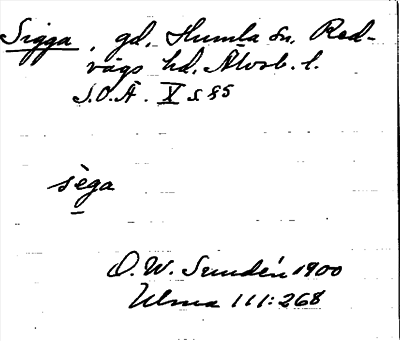 Sigga, gd, Humla sn, Red-
vägs hd, Älvsb. l.
S.O.Ä. X s 85
sèga
O. W. Sundén 1900
Ulma 111:268